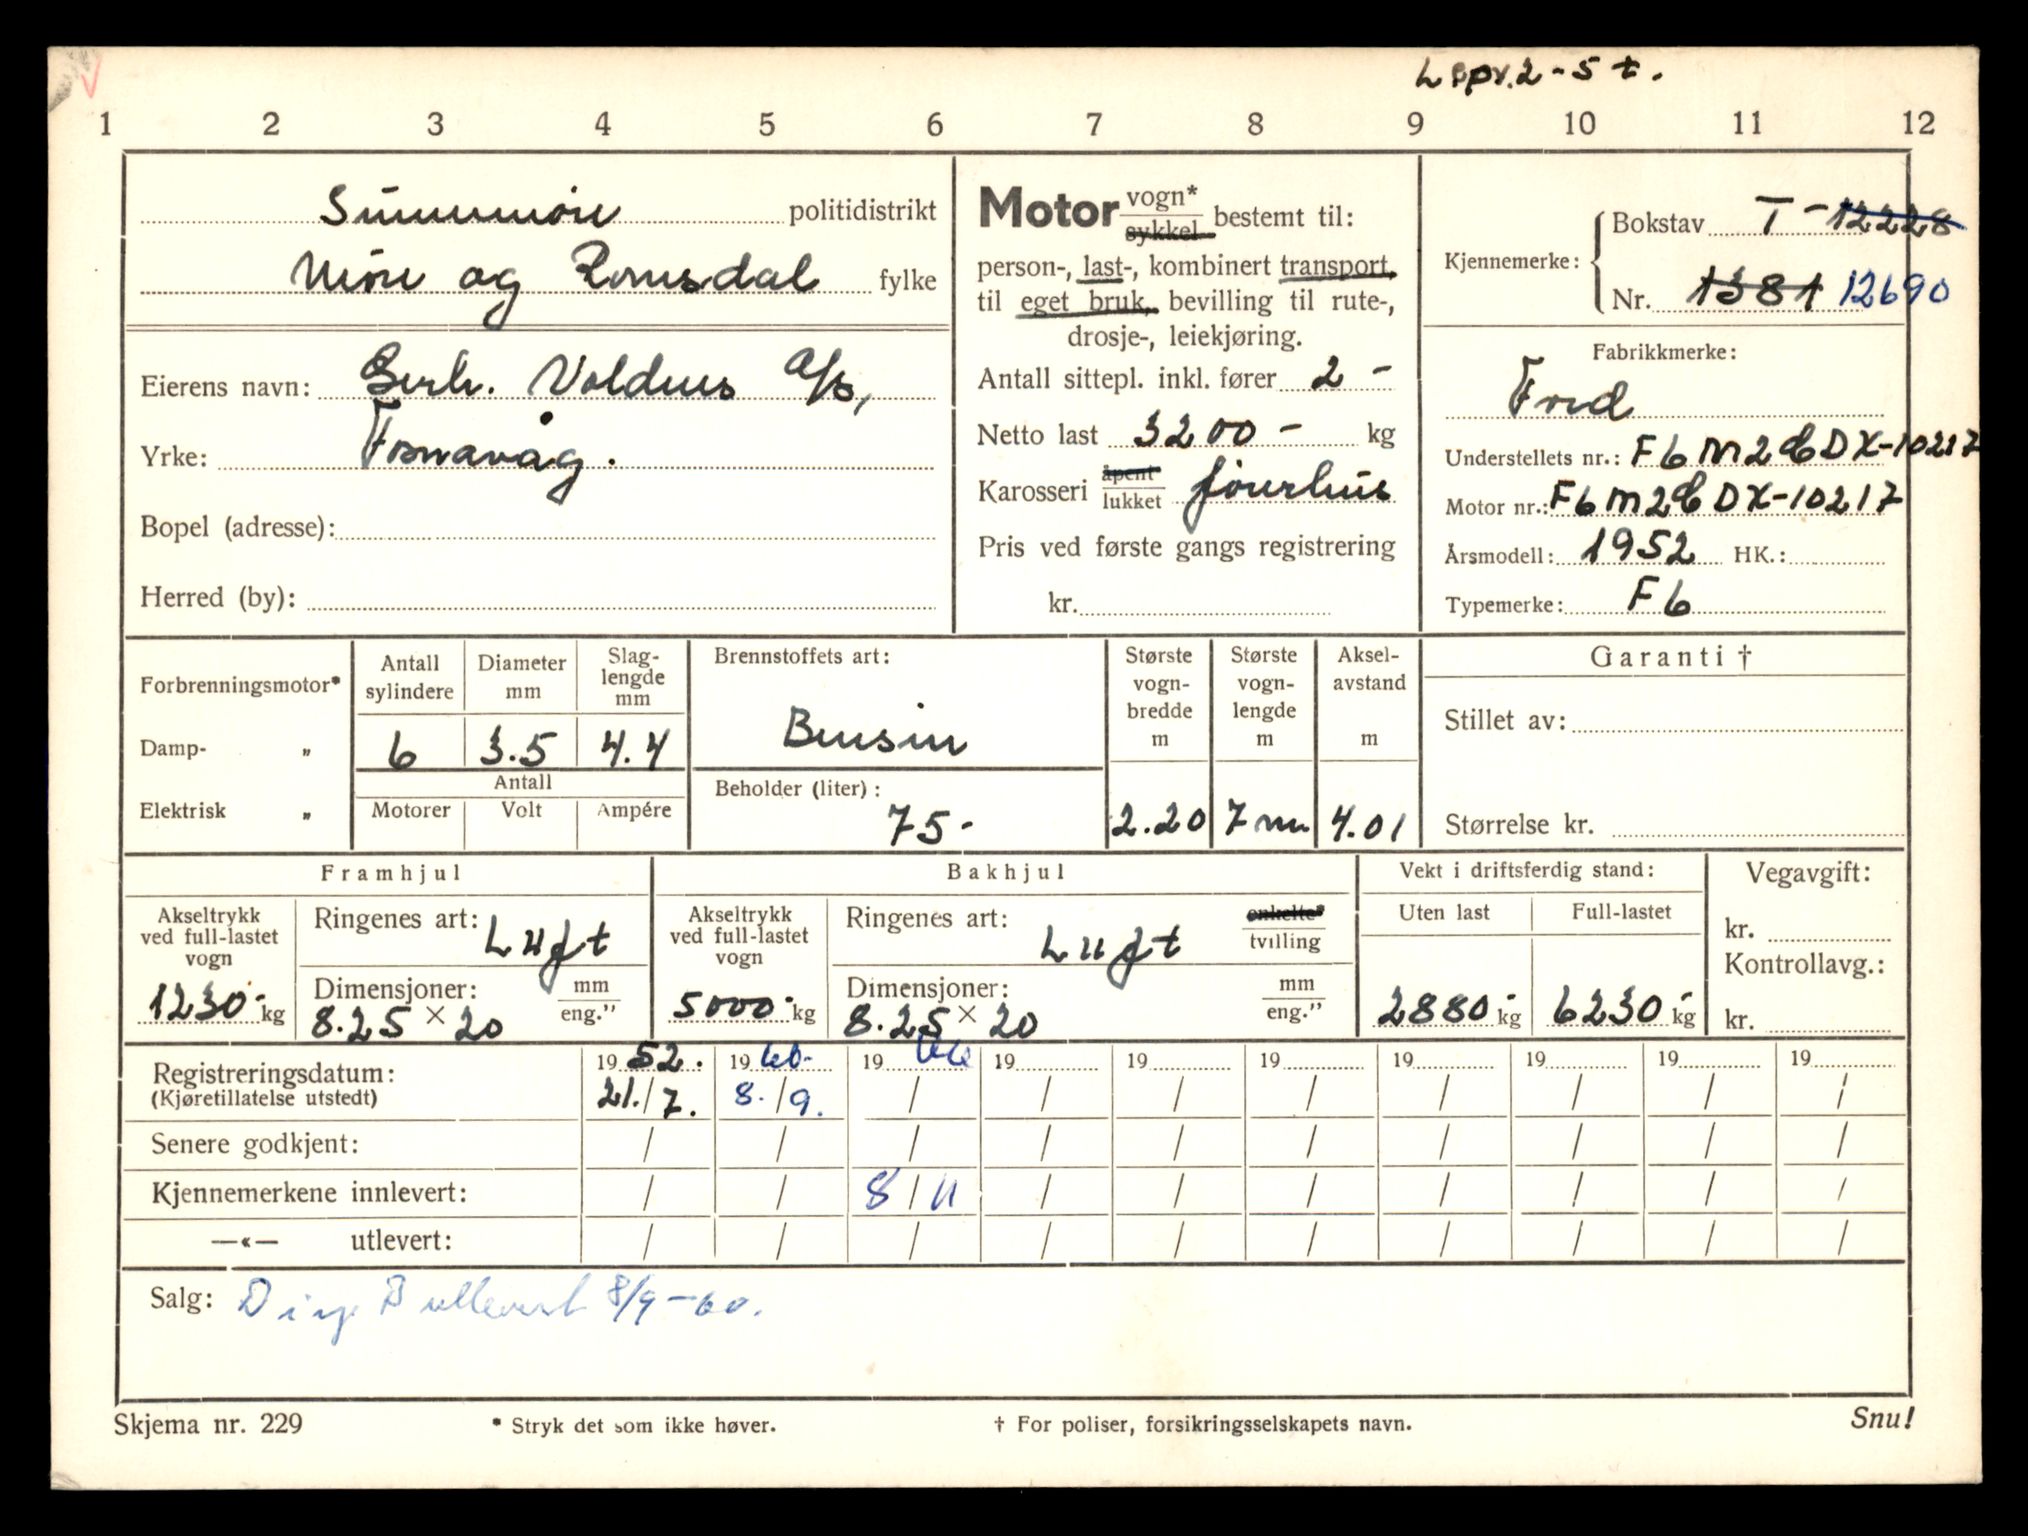 L spr. 2-5 t.
1 2 3 4 5 6 7 8 9 10 11 12
Sunnmöre politidistrikt
Möre og Romsdal fylke
Eierens navn: Gerh. Voldnes A/s,
Yrke: Fosnavåg.
Bopel (adresse):
Herred (by):
Motor vogn* sykkel bestemt til:
person-, last-, kombinert transport,
til eget bruk, bevilling til rute-,
drosje-, leiekjøring.
Antall sittepl. inkl. fører 2 -
Netto last 3200 - kg
Karosseri åpent lukket förerhus
Pris ved første gangs registrering
kr.
Kjennemerke: Bokstav T - 12228
Nr. 1381 12690
Fabrikkmerke:
Ford
Understellets nr.: F6M2CDX-10217
Motor nr.: F6M2CDX-10217
Årsmodell: 1952 HK.:
Typemerke: F6
Forbrenningsmotor*
Damp- „
Elektrisk „
Antall sylindere Diameter mm Slaglengde mm
6 3.5 4.4
Antall
Motorer Volt Ampére
Brennstoffets art:
Bensin
Beholder (liter):
75-
Største vogn-bredde m Største vogn-lengde m Aksel-avstand m
2.20 7 m 4.01
Garanti †
Stillet av:
Størrelse kr.
Framhjul
Akseltrykk ved full-lastet vogn
1230- kg
Ringenes art: Luft
Dimensjoner: mm eng."
8.25 × 20
Bakhjul
Akseltrykk ved full-lastet vogn
5000- kg
Ringenes art: Luft enkelte* tvilling
Dimensjoner: mm eng."
8.25 × 20
Vekt i driftsferdig stand:
Uten last Full-lastet
2880- kg 6230- kg
Vegavgift:
kr.
Kontrollavg.:
kr.
Registreringsdatum: 19 52. 19 60. 19 66 19 19 19 19 19 19 19
(Kjøretillatelse utstedt) 21./7. 8./9. / / / / / / / /
Senere godkjent: / / / / / / / / / /
Kjennemerkene innlevert: / / 8/11 / / / / / / /
—«— utlevert: / / / / / / / / / /
Salg: utlevert 8/9-60.
Skjema nr. 229 * Stryk det som ikke høver. † For poliser, forsikringsselskapets navn. Snu!